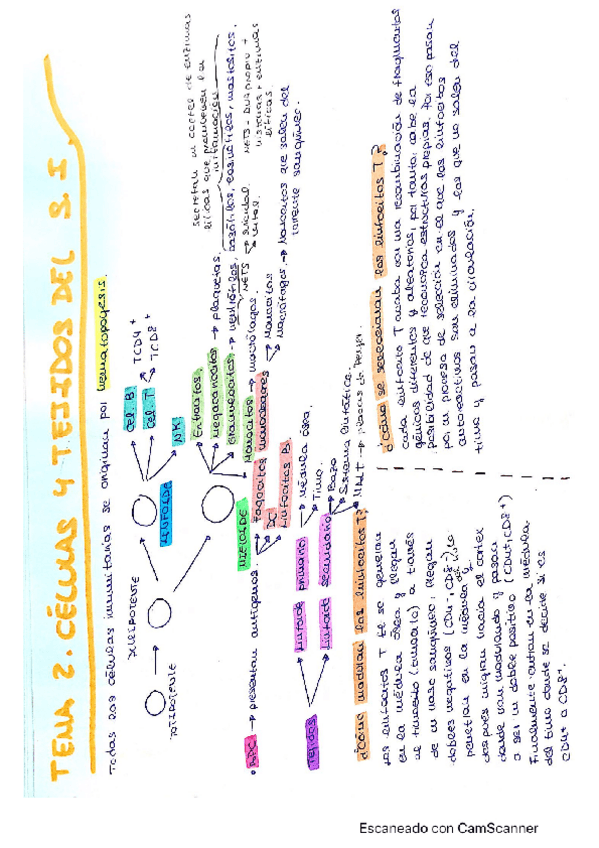 TEMA 2. CÉLULAS Y TEJIDOS DEL S. I
Todas las células inmunitarias se originan por hematopoyesis.
TOTIPOTENTE
MULTIPOTENTE
LINFOIDE
Cel. B
Cel. T
TCD4+
TCD8+
NK
MIELOIDE
Eritrocitos.
Megacariocitos → plaquetas.
Granulocitos → neutrófilos, basófilos, eosinófilos, mastocitos.
secretan un coctel de enzimas
líticas que promueven la
inflamación
NETS
suicidal
vital
NETS - DNA propio +
histonas + enzimas
líticas.
Monocitos → macrófagos.
• APC → presentan antígenos.
Fagocitos mononucleares
Monocitos
macrófagos → Monocitos que salen del
torrente sanguíneo.
DC
Linfocitos B.
Tejidos
Linfoide primario
médula ósea.
Timo.
Linfoide secundario
Bazo
Sistema linfático.
MALT → placas de Peyer.
¿Cómo maduran los linfocitos T?
Los linfocitos T se generan
en la médula ósea y llegan
al timocito (timo) a través
de un vaso sanguíneo; llegan
dobles negativos (CD4-, CD8-),
penetran en la médula del timo y
después migran hacia el cortex
donde van madurando y pasan
a ser un doble positivo (CD4+, CD8+)
Finalmente entran en la médula
del timo donde se decide si es
CD4+ o CD8+.
¿Cómo se seleccionan los linfocitos T?
Cada linfocito T acaba con una recombinación de fragmentos
génicos diferentes y aleatorios, por tanto, cabe la
posibilidad de que reconozca estructuras propias. Por eso pasan
por un proceso de selección en el que los linfocitos
autoreactivos son eliminados y los que no salen del
timo y pasan a la circulación.
Escaneado con CamScanner